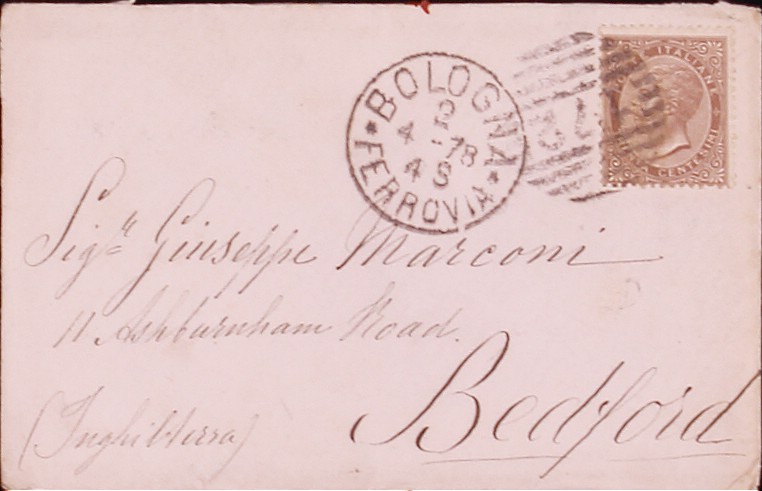 BOLOGNA
2
4 -78
4 S
* FERROVIA *
ITALIANE
CENTESIMI
Sigr. Giuseppe Marconi
11 Ashburnham Road.
Bedford
(Inghilterra)